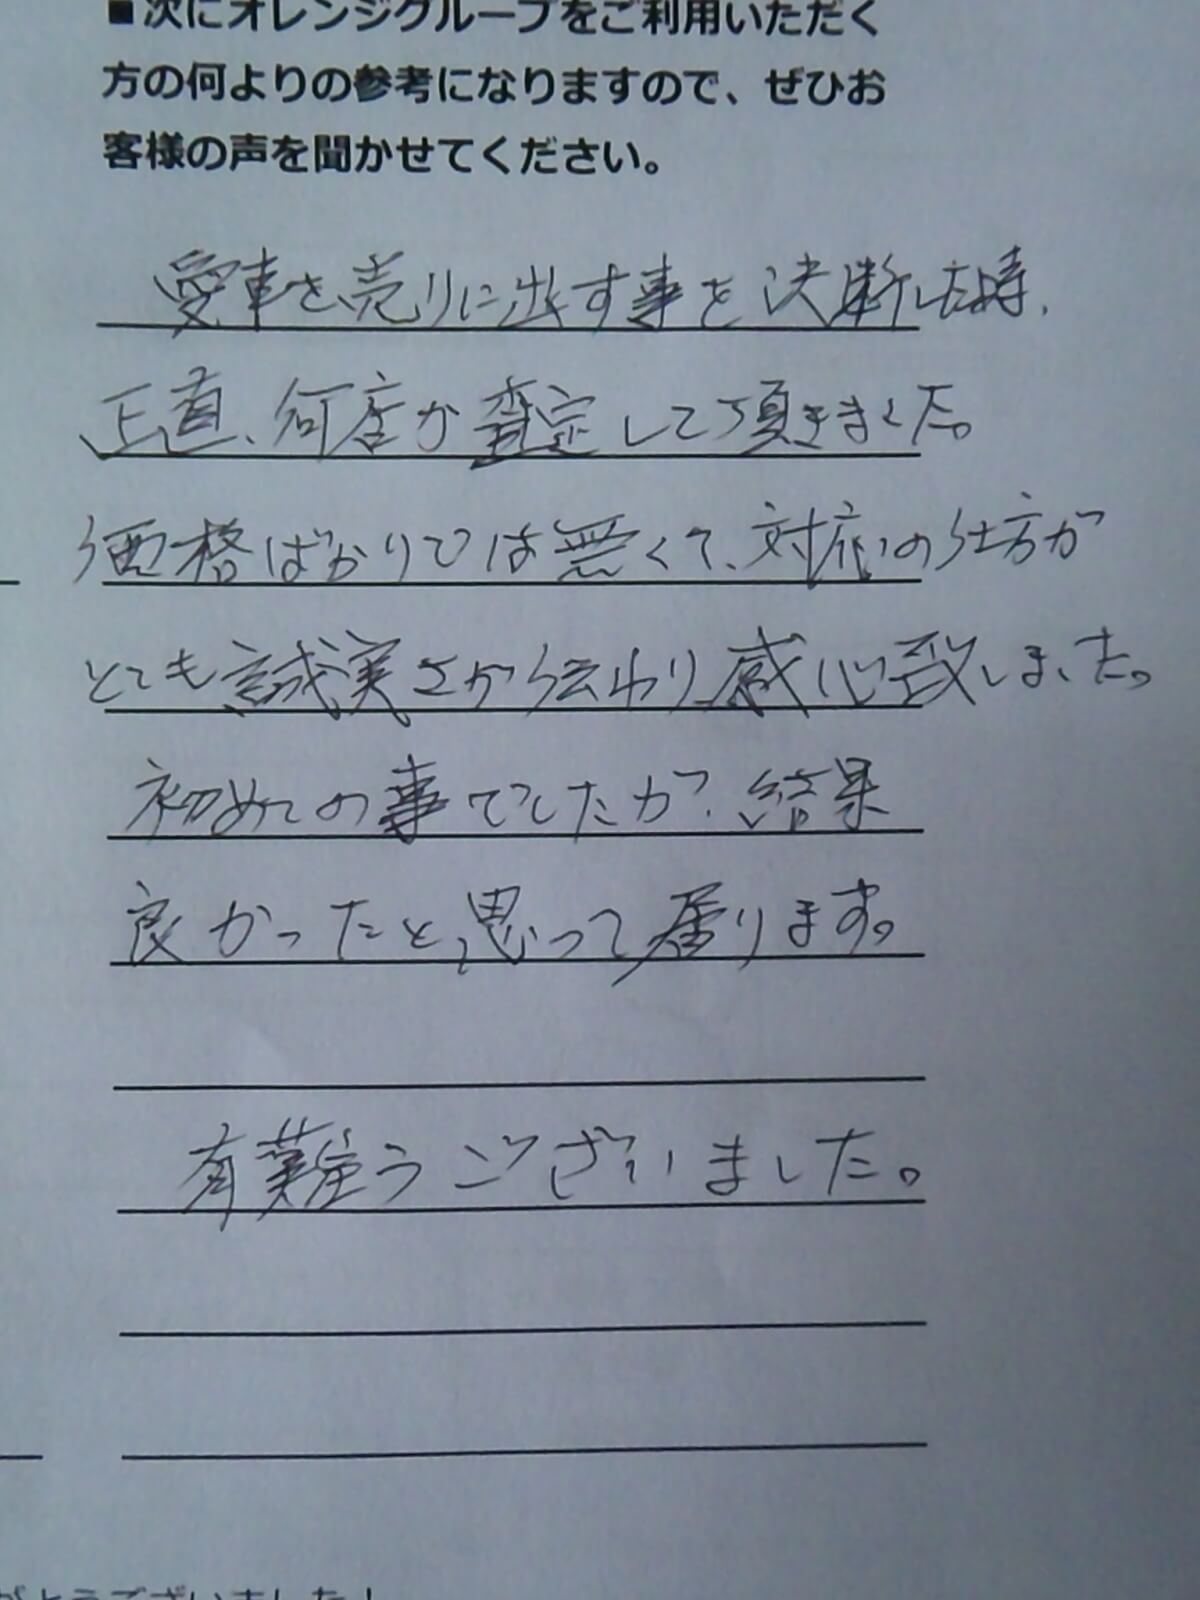 ■次にオレンジグループをご利用いただく
方の何よりの参考になりますので、ぜひお
客様の声を聞かせてください。
愛車を売りに出す事を決断した時、
正直、何度か査定して頂きました。
価格ばかりでは無くて、対応の仕方が
とても誠実さが伝わり感心致しました。
初めての事でしたが、結果
良かったと思って居ります。
有難うございました。
がとうございました!